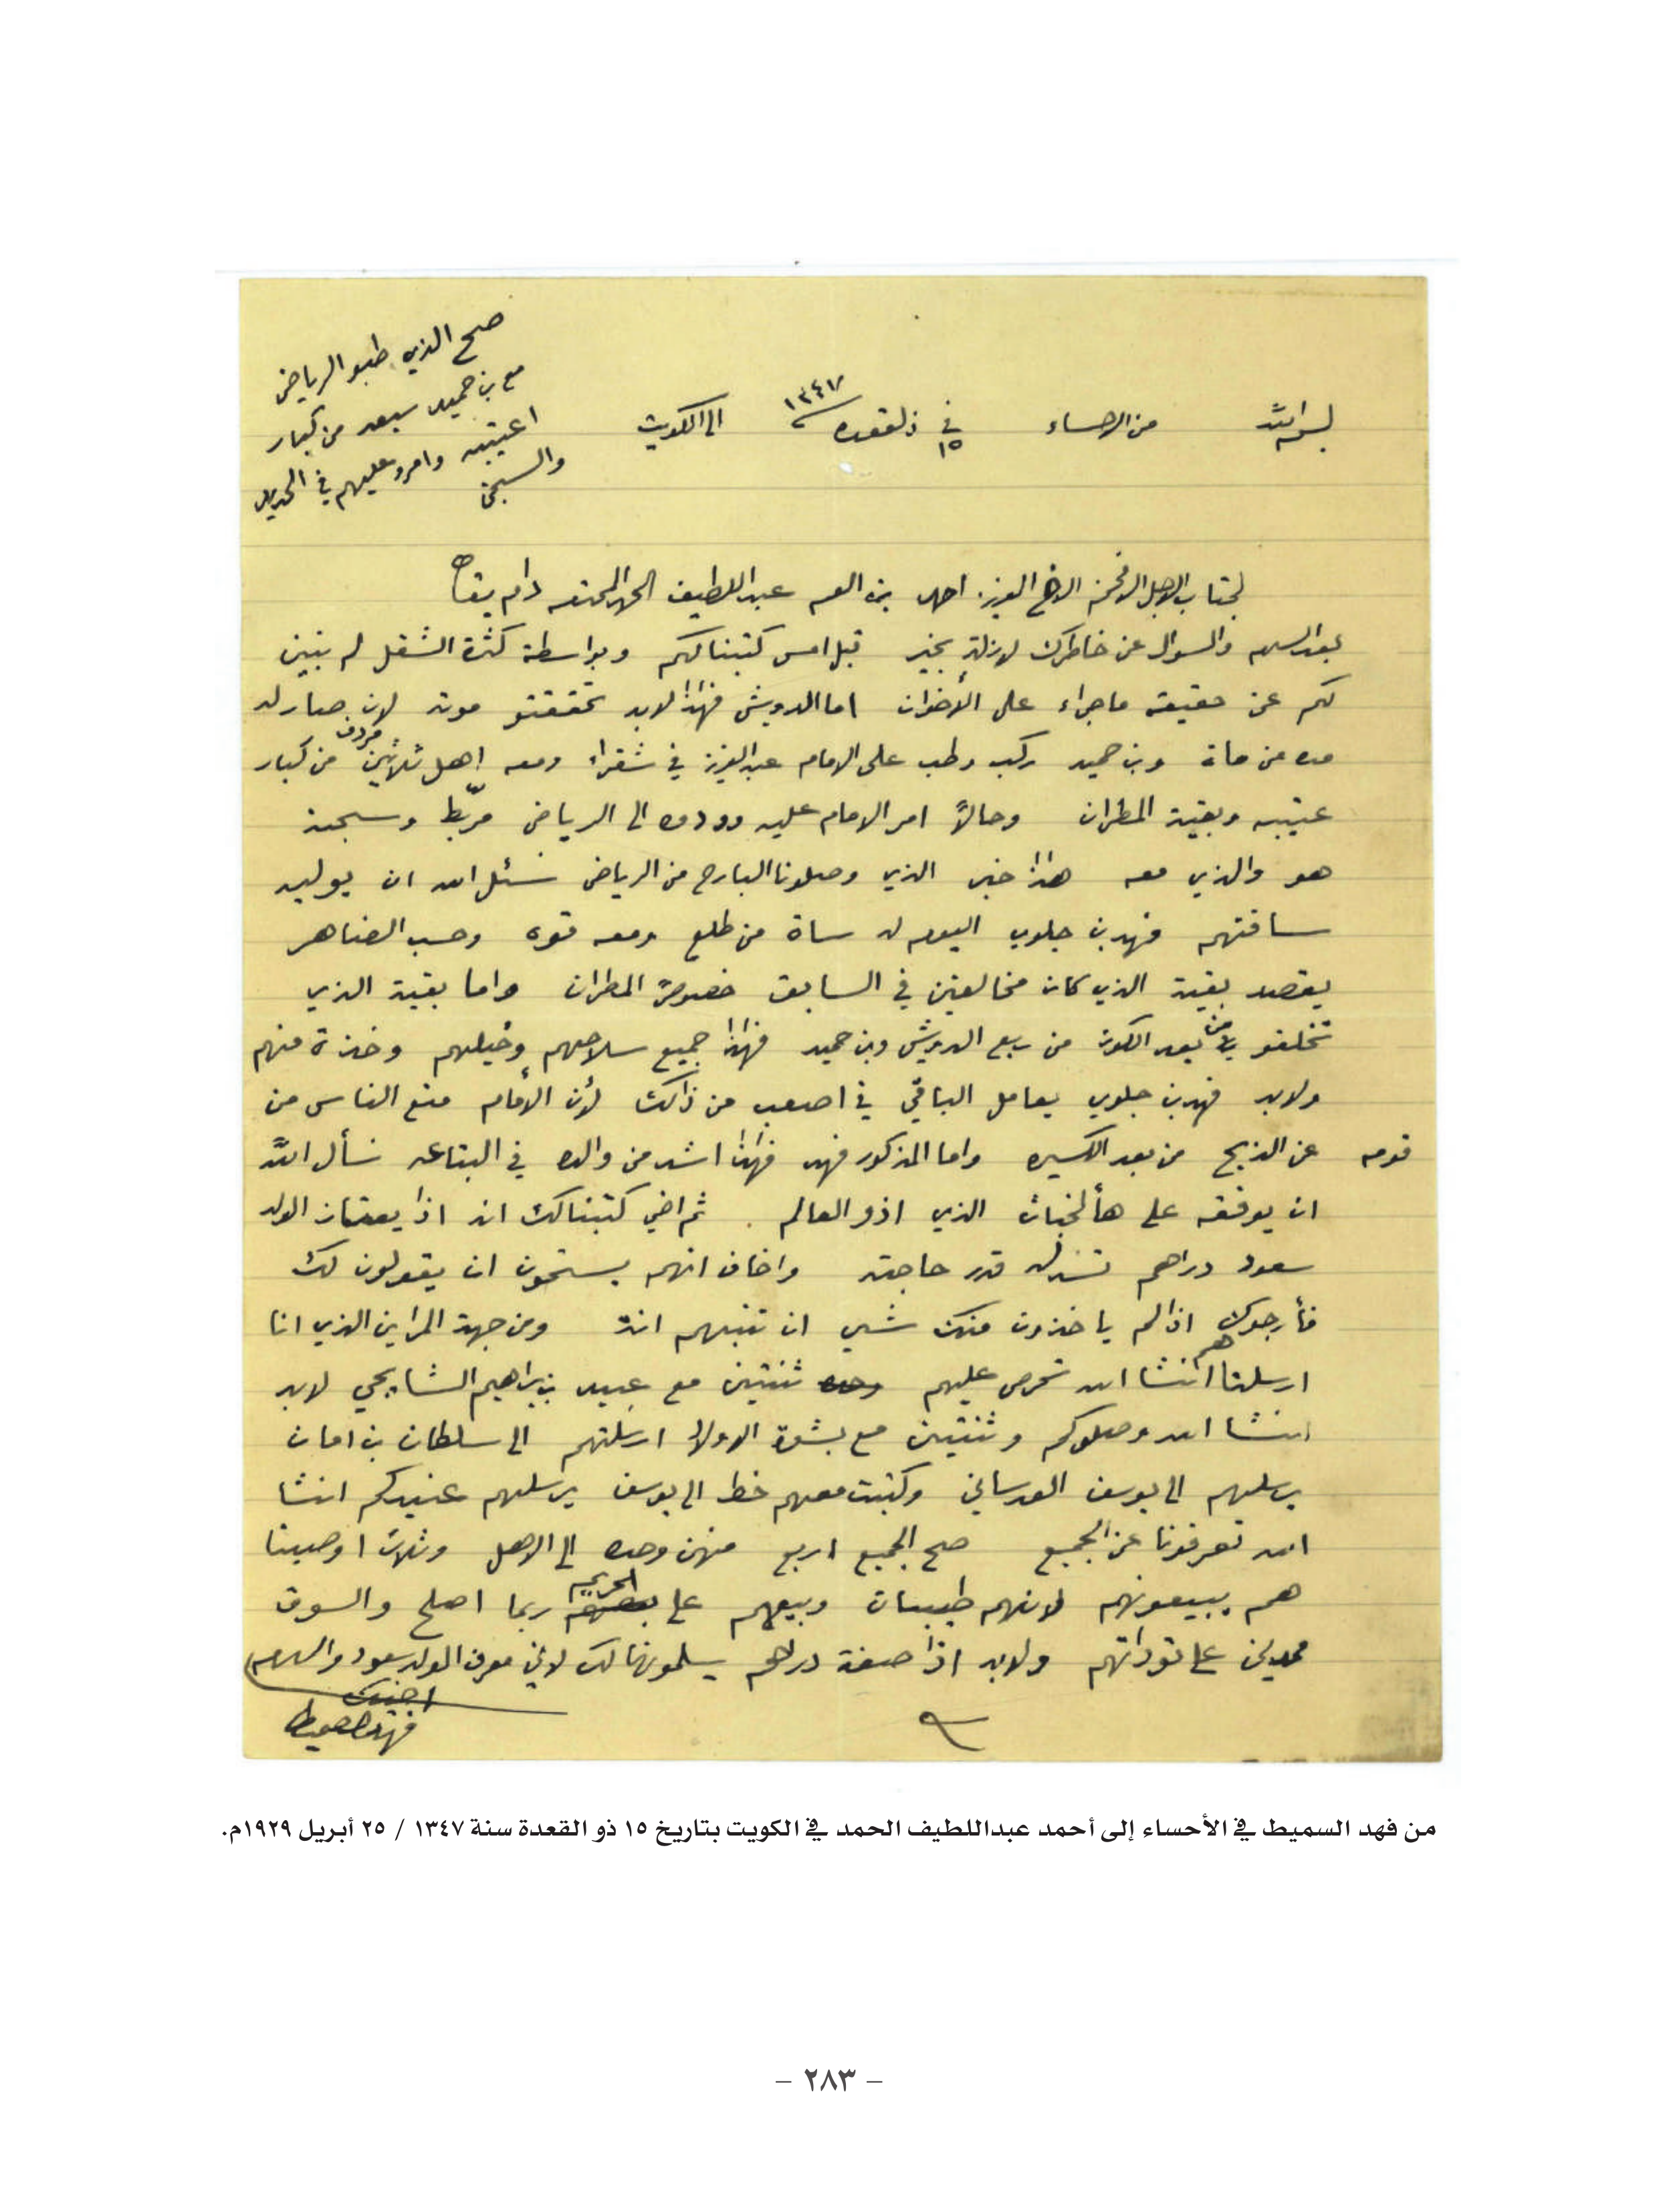 بسم الله من الاحساء في ١٥ ذلقعده ١٣٤٧ الى الكويت
صح الذي طبو الرياض
مع بن حميد سبعه من كبار
اعتيبه وامرو عليهم في الحديد
والسجن
لجناب الاجل الافخم الاخ العزيز احمد بن العم عبداللطيف الحمد المحترم دام بقاه
بعد السلام والسوال عن خاطرك لازلة بخير قبل امس كتبنا لكم وبواسطة كثرة الشغل لم نبين
لكم عن حقيقة ماجراء على الأخوان اما الدويش فهاذا لابد تحققتو موته لان صار له
مده من مات وبن حميد ركب وطب على الامام عبدالعزيز في شقراء ومعه اهل ثلاثين مردف من كبار
عتيبه وبقية المطران وحالاً امر الامام عليه وودوه الى الرياض مربّط وسجنه
هو والذي معه هاذا خبر الذي وصلونا البارح من الرياض نسئل الله ان يوليه
ساقتهم فهد بن جلوي اليوم له ساة من طلع ومعه قوه وحسب الضاهر
يقصد بقية الذي كان مخالفين في السابق خصوصً المطران واما بقية الذي
تخلفو من بعد الكون من ربع الدويش وبن حميد فهاذا جميع سلاحهم وخيلهم وخذة منهم
ولابد فهد بن جلوي يعامل الباقي في اصعب من ذالك لأن الأمام منع الناس من
قومه عن الذبح من بعد الكسيره واما المذكور فهد فهاذا اشد من والده في البتاعه نسأل الله
ان يوفقه على هألخباث الذي اذو العالم. ثم اخي كتبنا لك ان اذا يعتاز الولد
سعود دراهم تسد له قدر حاجته واخاف انهم يستحون ان يقولون لك
فأرجوك اذا لم ياخذون منك شي ان تنبههم انت ومن جهة المراين الذي انا
ارسلنا هم انشا الله تحرص عليهم ثنتين مع عبيد بن براهيم الشايجي لابد
انشا الله وصلوكم وثنتين مع بشوة الاولا ارسلتهم الى سلطان بن امان
يرسلهم الى يوسف العدساني وكتبت معهم خط الى يوسف يرسلهم عنيدكم انشا
الله تعرفونا عن الجميع صح الجميع اربع منهن وحده الى الاهل وثلاث اوصينا
هم يبيعونهم لانهم طيبات وبيعهم على الحريم ربما اصلح والسوق
محدلين على توداتهم ولابد اذا صفة دراهم يسلمونها لك لاني معرف الولد سعود والسلام
اخيك
فهد السميط
من فهد السميط في الأحساء إلى أحمد عبداللطيف الحمد في الكويت بتاريخ ١٥ ذو القعدة سنة ١٣٤٧ / ٢٥ أبريل ١٩٢٩م.
– ٢٨٣ –